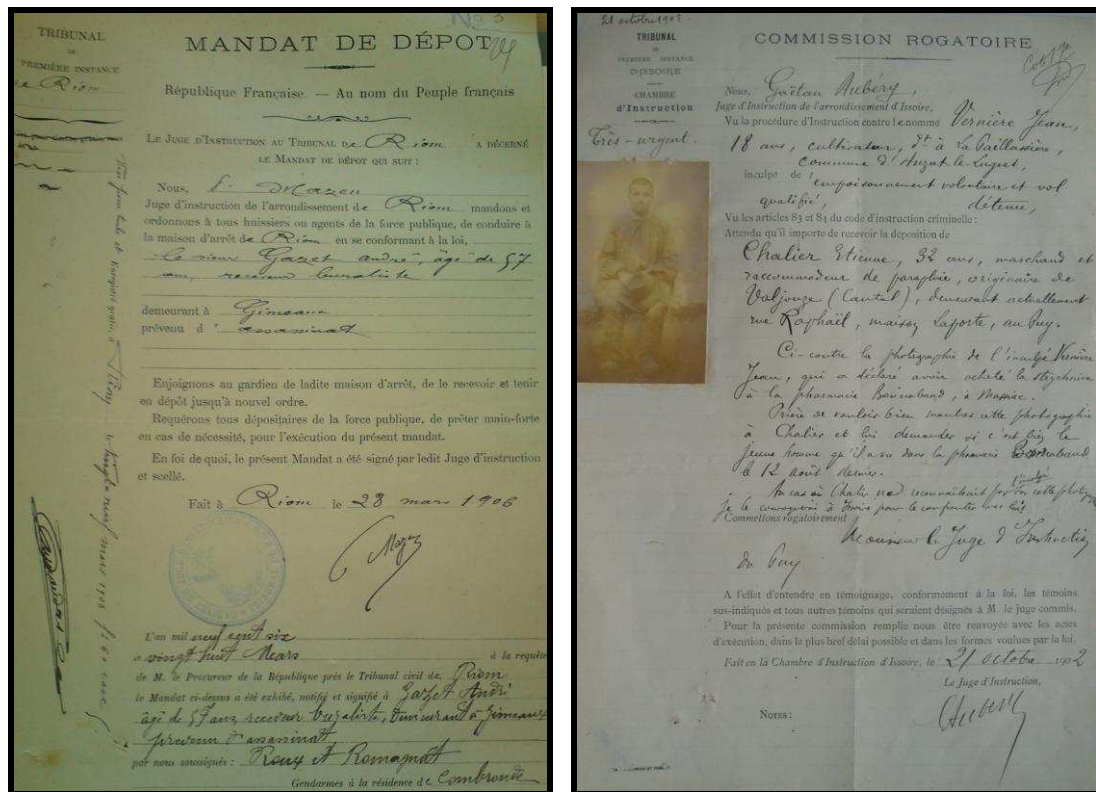 TRIBUNAL
DE
PREMIÈRE INSTANCE
de Riom
No 3
MANDAT DE DÉPOT
République Française. — Au nom du Peuple français
LE JUGE D'INSTRUCTION AU TRIBUNAL DE Riom A DÉCERNÉ
LE MANDAT DE DÉPOT QUI SUIT :
Nous, Mazen
Juge d'instruction de l'arrondissement de Riom mandons et
ordonnons à tous huissiers ou agents de la force publique, de conduire à
la maison d'arrêt de Riom en se conformant à la loi,
le sieur Gazet André, âgé de 57
ans, receveur buraliste
demeurant à Gimeaux
prévenu d'assassinat
Enjoignons au gardien de ladite maison d'arrêt, de le recevoir et tenir
en dépôt jusqu'à nouvel ordre.
Requérons tous dépositaires de la force publique, de prêter main-forte
en cas de nécessité, pour l'exécution du présent mandat.
En foi de quoi, le présent Mandat a été signé par ledit Juge d'instruction
et scellé.
Fait à Riom le 28 mars 1906
Mazen
L'an mil neuf cent six
le vingt huit Mars à la requête
de M. le Procureur de la République près le Tribunal civil de Riom
le Mandat ci-dessus a été exhibé, notifié et signifié à Gazet André
âgé de 57 ans receveur buraliste, demeurant à Gimeaux
prévenu d'assassinat
par nous soussignés : Roux et Romagnat
Gendarmes à la résidence de Combronde
21 octobre 1902
TRIBUNAL
DE
PREMIÈRE INSTANCE
D'ISSOIRE
CHAMBRE
d'Instruction
Très-urgent.
COMMISSION ROGATOIRE
Nous, Gaëtan Aubéry,
Juge d'Instruction de l'arrondissement d'Issoire,
Vu la procédure d'Instruction contre le nommé Vernière Jean,
18 ans, cultivateur, dt à la Paillassière,
commune d'Anzat-le-Luguet,
inculpé de empoisonnement volontaire et vol
qualifié, détenu,
Vu les articles 83 et 84 du code d'instruction criminelle :
Attendu qu'il importe de recevoir la déposition de
Chalier Etienne, 32 ans, marchand et
raccommodeur de parapluie, originaire de
Valjouze (Cantal), demeurant actuellement
rue Raphaël, maison Laporte, au Puy.
Ci-contre la photographie de l'inculpé Vernière
Jean, qui a déclaré avoir acheté la strychnine
à la pharmacie à Massiac.
Prière de vouloir bien montrer cette photographie
à Chalier et lui demander si c'est bien le
jeune homme qu'il a vu dans la pharmacie
le 12 août dernier.
Au cas où Chalier ne reconnaîtrait pas l'inculpé sur cette photographie
je le convoquerai à Issoire pour le confronter avec lui
Commettons rogatoirement
Monsieur le Juge d'Instruction
du Puy
A l'effet d'entendre en témoignage, conformément à la loi, les témoins
sus-indiqués et tous autres témoins qui seraient désignés à M. le juge commis.
Pour la présente commission remplie nous être renvoyée avec les actes
d'exécution, dans le plus bref délai possible et dans les formes voulues par la loi.
Fait en la Chambre d'Instruction d'Issoire, le 21 octobre 1902
Le Juge d'Instruction,
Aubéry
NOTES :